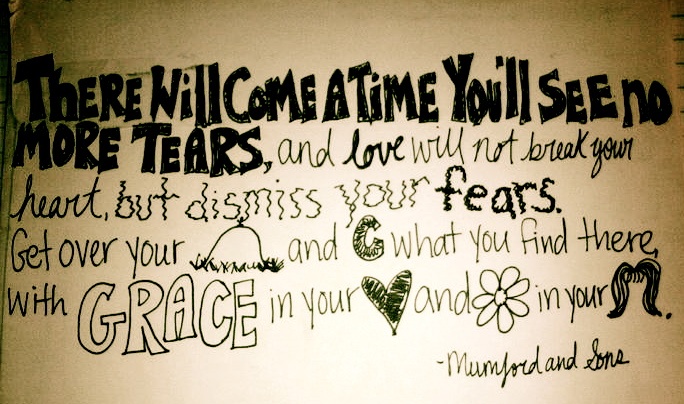 THERE Will COME A TiME YOU'll SEE no
MORE TEARS, and love will not break your
heart, but dismiss your fears.
Get over your and C what you find there,
with GRACE in your and in your .
-Mumford and Sons